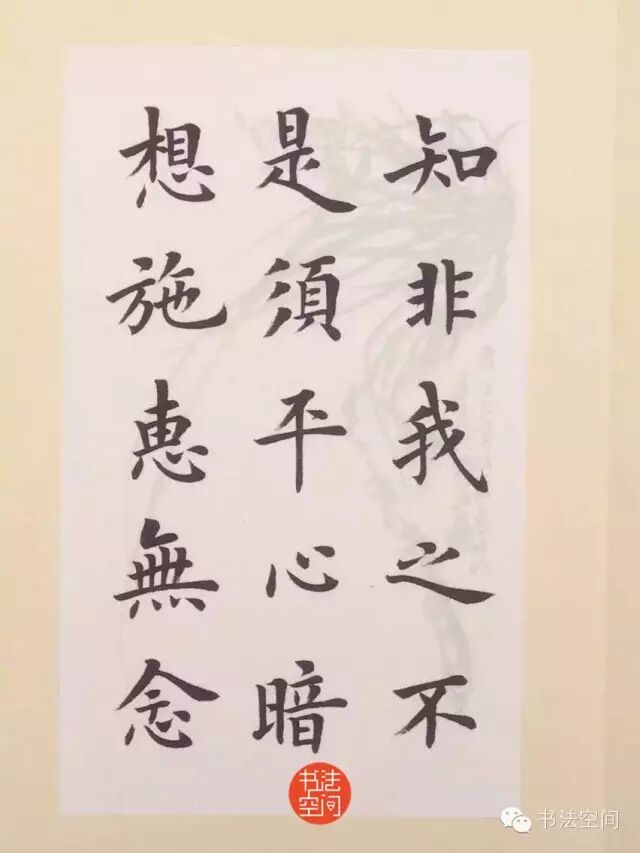 知非我之不
是須平心暗
想施惠無念
书法空间
书法空间